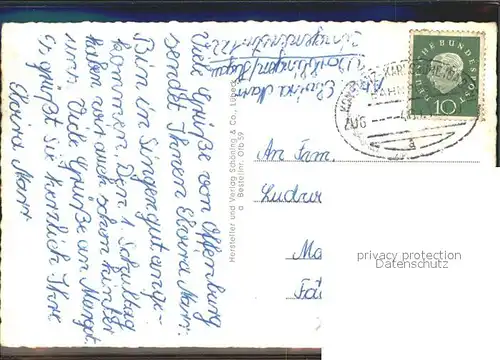 Viele Grüße von Offenburg
sendet Ihnen Elvira Marr.
Bin in Singen gut ange-
kommen. Den 1. Schultag
haben wir auch schon hinter
uns. Viele Grüße an Margot.
Es grüßt Sie herzlich Ihre
Elvira Marr
Abs.
Elvira Marr
Hersteller und Verlag Schöning & Co., Lübeck
a Bestellnr. Ofb 59
DEUTSCHE BUNDESPOST
10
BAHNPOST
ZUG
a
An Fam.
Ludw
Ma
privacy protection
Datenschutz